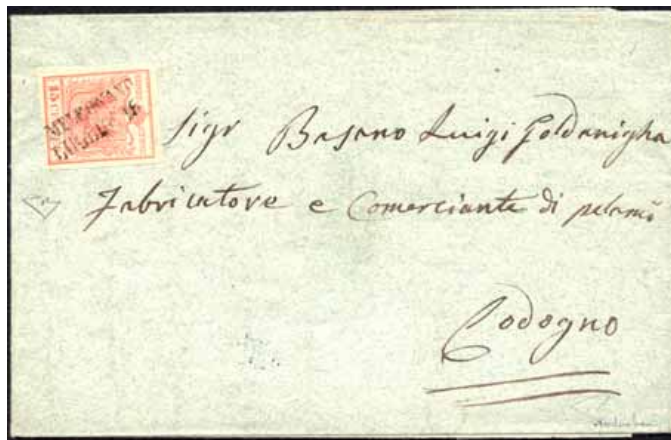 15
MELEGNANO
LUGLIO 16
Sigr Basano Luigi Goldanigha
Fabricatore e Comerciante di pelami
Codogno